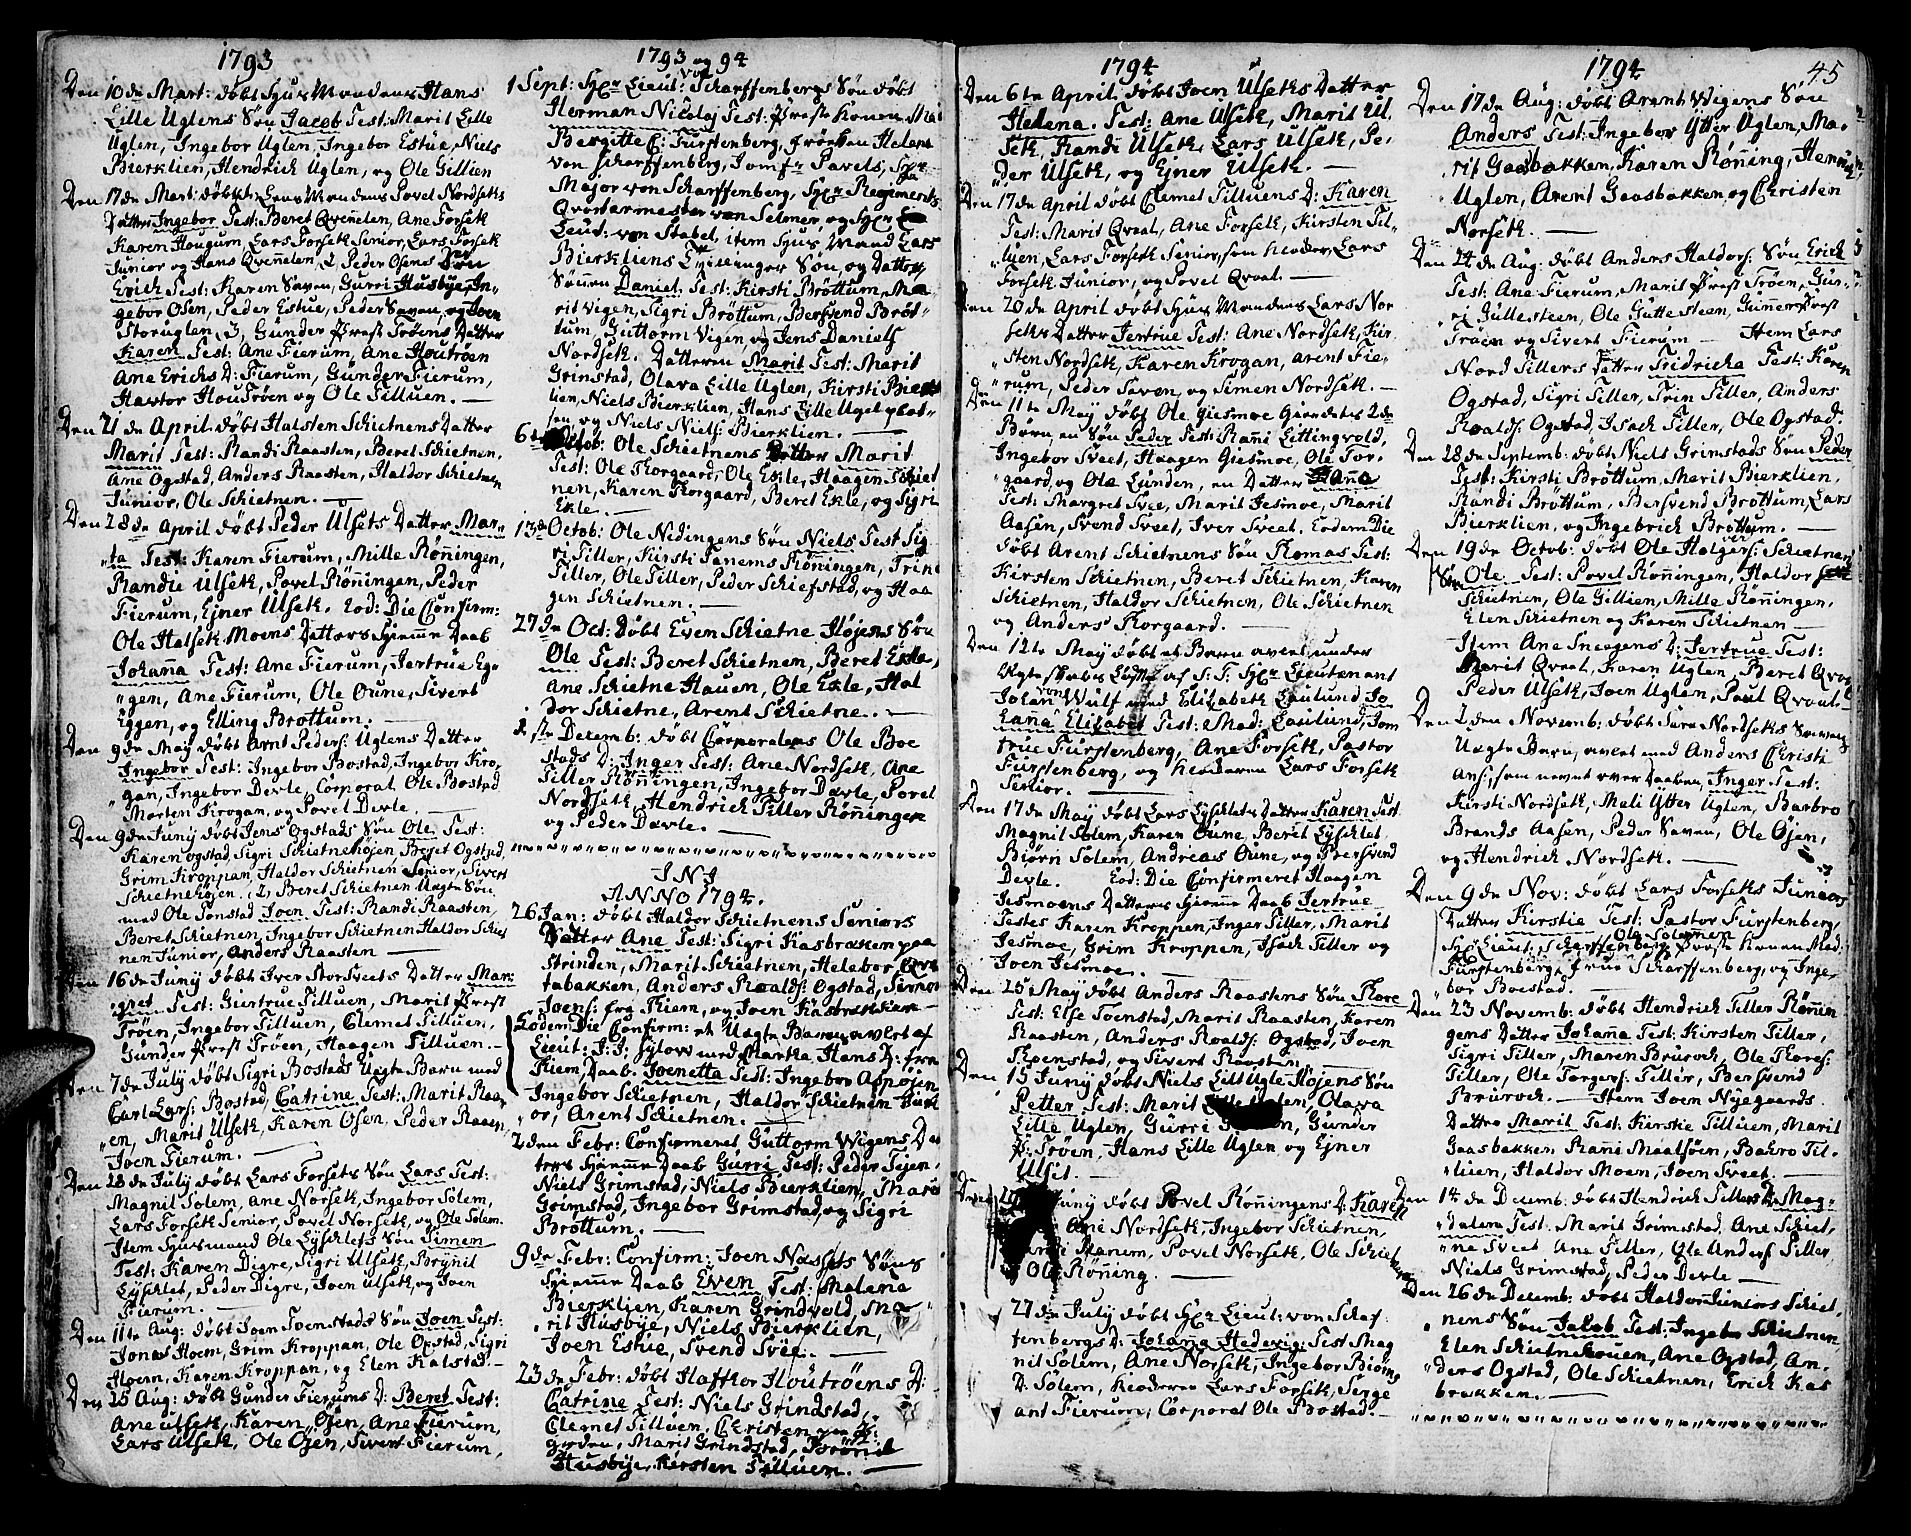 1793
Den 10de Mart: døbt Huus Mandens Hans
Lille Uglens Søn Jacob Test: Marit Lille
Uglen, Ingebor Uglen, Ingebor Estue, Niels
Bierklien, Hendrich Uglen, og Ole Gillien
Den 17de Mart: døbt Povel Nordseths
Datter Ingebor Test: Beret Qvenelen, Ane Forseth
Karen Hougum, Lars Forseth Senior, Lars Forseth
Junior og Hans Qvenelen, 2, Peder Osens Søn
Erich Test: Karen Saven, Gurri Husbye, In-
gebor Osen, Peder Estue, Peder Saven, og Joen
Storuglen, 3, Gunder Præst Trøens Datter
Karen Test: Ane Fierum, Ane Houtrøen
Ane Erichs D: Fierum, Gunder Fierum,
Havtor HouTrøen og Ole Tilluen.
Den 21 de April. døbt Halsten Schietnens Datter
Marit Test: Randi Raasten, Beret Schietnen,
Ane Ogstad, Anders Raasten, Haldor Schietnen
Junior, Ole Schietnen.
Den 28de April døbt Peder Ulsets Datter Mar-
ta Test: Karen Fierum, Mille Røningen,
Randie Ulseth, Povel Røningen, Peder
Fierum, Ejner Ulseth. Eod: Die Confirm:
Ole Halseth Moens Datters Hjemme Daab
Johana Test: Ane Fierum, Jertrue Eg-
gen, Ane Fierum, Ole Oune, Sivert
Eggen, og Elling Brøttum.
Den 9de May døbt Arnt Peders: Uglens Datter
Ingebor Test: Ingebor Bostad, Ingebor Kro-
gan, Ingebor Devle, Corporal Ole Bostad
Morten Krogan, og Povel Devle
Den 9de Juny døbt Jens Ogstads Søn Ole Test:
Karen Ogstad, Sigri Schietnehøjen, Beret Ogstad,
Grim Kroppan, Haldor Schietnen Senior, Sivert
Schietnehøjen. 2, Beret Schietnen Uægte Søn
med Ole Tonstad Joen. Test: Randi Raasten,
Beret Schietnen, Ingebor Schietnen Haldor Schiet
nen Junior, Anders Raasten
Den 16de Juny døbt Iver Storsveets Datter Mar:
gret Test: Giertrue Tilluen, Marit Præst
Trøen, Ingebor Tilluen, Clemet Tilluen,
Gunder Præst Trøen, Haagen Tilluen.
Den 7de July døbt Sigri Bostads Uægte Barn med
Carl Lars: Bostad, Catrine Test: Marit Raas
en, Marit Ulseth, Karen Osen, Peder Raasen,
Joen Fierum.
Den 28de July døbt Lars Forsets Søn Lars Test:
Magnil Solem, Ane Norseth, Ingebor Solem,
Lars Forseth Senior, Povel Norseth, og Ole Solem.
Item Huusmand Ole Lyschlets Søn Simen
Test: Karen Digre, Sigri Ulseth, Brynil
Lyschlet, Peder Digre, Joen Ulseth, og Joen
Fierum.
Den 11te Aug: døbt Joen Toenstads Søn Joen Test:
Jonas Hoem, Grim Kroppan, Ole Ogstad, Sigri
Hoem, Karen Kroppan, og Elen Kalstad.
Den 25 Aug: døbt Gunder Fierums D: Beret Test:
Ane Ulseth, Karen Osen, Ane Fierum,
Lars Ulseth, Ole Osen, Sivert Fierum,
1793 og 94
1 Sept: Hr Lieut: von Scharffenbergs Søn døbt
Herman Nicolaj Test: Præste konen, Mad
Bergitte C: Furstenberg, Frøken Helene
von Scharffenberg, Jomfr Pavels, Hr
Major von Scharffenberg, Hr Regiments
Qvartermester von Selmer, og Hr
Lieut: von Stabel, item Huus Mand Lars
Bierkliens Tvillinger Søn og Datter
Sønnen Daniel Test: Kirsti Brøttum, Ma-
rit Vigen, Sigri Brøttum, Bersvend Brøt
tum Guttorm Vigen og Jens Daniels
Nordseth. Datteren Marit Test: Marit
Grinstad, Olava Lille Uglen, Kirsti Bierk
lien, Niels Bierklien, Hans Lille Ugel plat-
sen og Niels Niels: Bierklien.
6te Octob: Ole Schietnens Datter Marit
Test: Ole Korgaard, Ole Ekle, Haagen Schiet
nen, Karen Korgaard, Beret Ekle, og Sigri
Ekle.
13de Octob: Ole Nedingens Søn Niels Test Sig
ri Tiller, Kirsti Tanem Røningen, Trine
Tiller, Ole Tiller, Peder Schiefstad, og Haa
gen Schietnen.
27de Oct: døbt Even Schietne Højens Søn
Ole Test: Beret Schietnem, Beret Ekle,
Ane Schietne Hauen, Ole Ekle, Hal
dor Schietne, Arent Schietne.
1ste Decemb: døbt Corporalens Ole Boe
stads D: Inger Test: Ane Nordseth, Ane
Tiller Røningen, Ingebor Devle, Povel
Nordseth, Hendrich Tiller Røningen
og Peder Devle.
I N J
ANNO 1794.
26 Jan: døbt Haldor Schietnens Seniors
Datter Ane Test: Sigri Kasbrækem paa
Strinden, Marit Schietnen, Helebor
tabakken, Anders Roalds: Ogstad, Simon
Joens: fra Tiem, og Joen Kastbrækken
Eodem Die Confirm: et Uægte Barn avlet af
Lieut: J: J: Sylow med Martha Hans D: fra
Tiem, Daab. Joenetta Test: Ingebor Aspøjen,
Ingebor Schietnen, Haldor Schietnen Juni
or, Arent Schietnen.
2den Febr: Confirmeret Guttorm Wigens Dat
ters Hjemme Daab Gurri Test: Peder Tejen,
Niels Grimstad, Niels Bierklien, Marit
Grimstad, Ingebor Grimstad, og Sigri
Brøttum.
9de Febr: Confirm: Joen Næssets Søns
Hjemme Daab Even Test: Malena
Bierklien, Karen Grindvold, Ma-
rit Husbye, Niels Bierklien,
Joen Estue, Svend Svee.
23de Febr: døbt Hafthor Houtrøens D:
Catrine Test: Niels Grindstad,
Clemet Tilluen, Christen paa
gorden, Marit Grindstad, Brønil
Husbye, Kirsten Tilluen.
1794
Den 6te April døbt Joen Ulseths Datter
Helena. Test: Ane Ulseth, Marit Ul-
seth, Randi Ulseth, Lars Ulseth, Pe-
der Ulseth, og Ejner Ulseth.
Den 17de April døbt Clemet Tilluens D: Karen
Test: Marit Qvaal, Ane Forseth, Kirsten Til-
luen, Lars Forseth Senior, som heder, Lars
Forseth Junior, og Povel Qvaal.
Den 20de April døbt Huus Mandens Lars Nor
seths Datter Jertrue Test: Ane Nordseth, Kir
sten Nordseth, Karen Krogan, Arent Fie-
rum, Peder Saven, og Simen Nordseth.
Den 11te May døbt Ole Giesmoe Gaardets 2de
Børn en Søn Peder Test: Rani Lettingvold,
Ingebor Sveet, Haagen Giesmoe, Ole Tor-
gaard, og Ole Lunden, en Datter Ana
Test: Margret Svee, Marit Jesmoe, Marit
Aasen, Svend Sveet, Iver Sveet. Eodem Die
døbt Arent Schietnens Søn Thomas Test:
Kirsten Schietnen, Beret Schietnen, Karen
Schietnen, Haldor Schietnen, Ole Schietnen
og Anders Korgaard.
Den 12te May døbt et Barn avlet under
Ægteskabs Løfte af S: T: Hr Lieutenant
Johan von Wulf med Elizabeth Laulund Jo
hana Elizabet Test: Mad: Laulund, Jom
frue Fürstenberg, Ane Forseth, Pastor
Fürstenberg, og Lars Forseth
Senior.
Den 17de May døbt Lars Lyschlets Datter Karen Test
Magnil Solem, Karen Oune, Beret Lyschlet
Biørn Solem, Andreas Oune, og Bersvend
Devle. Eod: Die Confirmeret Haagem
Jesmoens Datters Hjemme Daab Jertrue
Testes Karen Kroppen, Inger Tiller, Marit
Jesmoe, Grim Kroppen, Isach Tiller og
Joen Jesmoe.
Den 25: May døbt Anders Raastens Søn Thore
Test: Else Toenstad, Marit Raasten, Karen
Raasten, Anders Roalds: Ogstad, Joen
Thoenstad, og Sivert Raasten
Den 15 Juny døbt Niels Lill Ugle Højens Søn
Petter Test: Marit Lille Uglen, Olava
Lille Uglen, Gurri, Gunder
P: Trøen, Hans Lille Uglen og Ejner
Ulset.
Juny døbt Povel Røningens D: Karen
Ane Nordseth, Ingebor Schietnen,
Hanum, Povel Norseth, Ole Schiet
Ole Røning.
27de July døbt Hr Lieut: von Schaf
tenbergs D: Johana Hedevig: Test Mag
nil Solem, Ane Norseth, Ingebor Biørns
D: Solem, Lars Forseth, Serge
ant Fierum, Corporal Ole Bostad.
1794
45
Den 17de Aug: døbt Arent Wigens Søn
Anders Test: Ingebor Ytter Uglen, Ma-
rit Gaasbakken, Karen Røning, Henrich
Uglen, Arent Gaasbakken, og Christen
Norseth.
Den 24de Aug: døbt Anders Haldors: Søn Erich
Test: Ane Fierum, Marit Præst Trøen, Gur-
ri Gullesteen, Ole Guttesteen, Gunner Præst
Trøen og Sivert Fierum Item Lars
Nord Tillers Datter Fridricha Test: Karen
Ogstad, Sigri Tiller, Trin Tiller, Anders
Roalds: Ogstad, Isach Tiller, Ole Ogstad.
Den 28de Septemb: døbt Niels Grimstads Søn Peder
Test: Kirsti Brøttum, Marit Bierklien,
Randi Brøttum, Bersvend Brøttum, Lars
Bierklien, og Ingebrich Brøttum.
Den 19de Octob: døbt Ole Holgers: Schietnens
Søn Ole Test: Povel Røningen, Haldor
Schietnen, Ole Gillien, Mille Røningen,
Elen Schietnen og Karen Schietnen
Item Ane Sneegens D: Jertrue Test:
Marit Qvaal, Karen Uglen, Beret Qvaal
Peder Ulseth, Joen Uglen, Paul Qvaal-
Den 2den Novemb: døbt Sara Nordseths Savens
Uægte Barn, avlet med Anders Christi
Ans:, som nævnt over Daaben, Inger Test:
Kirsti Nordseth, Meli Ytter Uglen, Barbro
Brands Aasen, Peder Saven, Ole Øjen,
og Hendrich Nordseth.
Den 9de Nov: døbt Lars Forseths Juniors
Datter Kirstie Test: Pastor Fürstenberg,
Ole Solemen
Hr Lieut: Scharffenberg, Præste konen Mad:
Furstenberg, Frue Scharffenberg, og Inge-
bor Boestad.
Den 23 Novemb: døbt Hendrich Tiller Rønin
gens Datter Johana Test: Kirsten Tiller,
Sigri Tiller, Maren Brurock, Ole Thores:
Tiller, Ole Torgers: Tiller, Bersvend
Brurock. Item Joen Nyegaards
Datter Marit Test: Kirstie Tilluen, Marit
Gaasbakken Rani Maatsøen, Barbro Til-
luen, Haldor Moem, Joen Sveet.
Den 14de Decemb: døbt Hendrich Tillers D: Mag-
dalem Test: Marit Grimstad, Ane Schiet,
ne Sveet Ane Tiller, Ole Anders: Tiller
Niels Grimstad, Peder Devle
Den 26de Decemb: døbt Haldor Juniors Schiet,
nens Søn Jacob Test: Ingebor Schietnen,
Elen Schietnehouen, Ane Ogstad, An-
ders Ogstad, Ole Schietnen, Erich Kas
brækken.